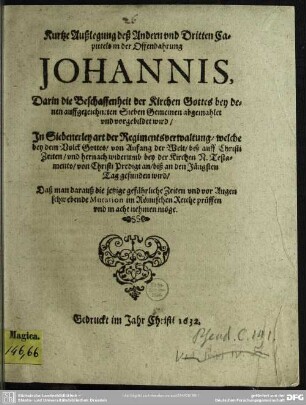 Kurtze Außlegung deß Andern vnd Dritten Ca-
pittels in der Offenbahrung
JOHANNIS,
Darin die Beschaffenheit der Kirchen Gottes bey de-
nen auffgezeichneten Sieben Gemeinen abgemahlet
vnd vorgebildet wird/
In Siebenerley art der Regimentsverwaltung/ welche
bey dem Volck Gottes/ von Anfang der Welt/ biß auff Christi
Zeiten/ vnd hernach widerumb bey der Kirchen N. Testa-
mentes/ von Christi Predigt an/ biß an den Jüngsten
Tag gefunden wird/
Daß man darauß die jetzige gefährliche Zeiten vnd vor Augen
schwebende Mutation im Römischen Reiche prüffen
vnd in acht nehmen möge.
Gedruckt im Jahr Christi 1632.
Magica.
146,66